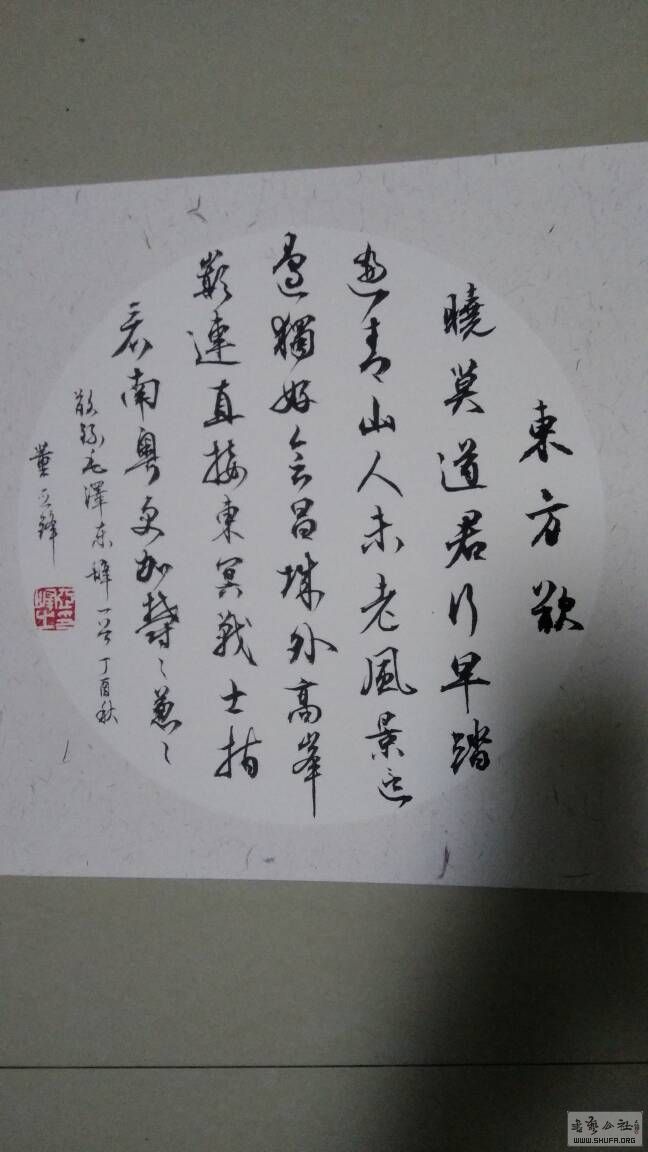 東方欲
曉莫道君行早踏
遍青山人未老風景这
邊獨好会昌城外高峯
巔連直接東冥戰士指
看南粤更加鬱〻葱〻
敬録毛澤东辞一首丁酉秋
董亚鋒
書藝公社
WWW.SHUFA.ORG